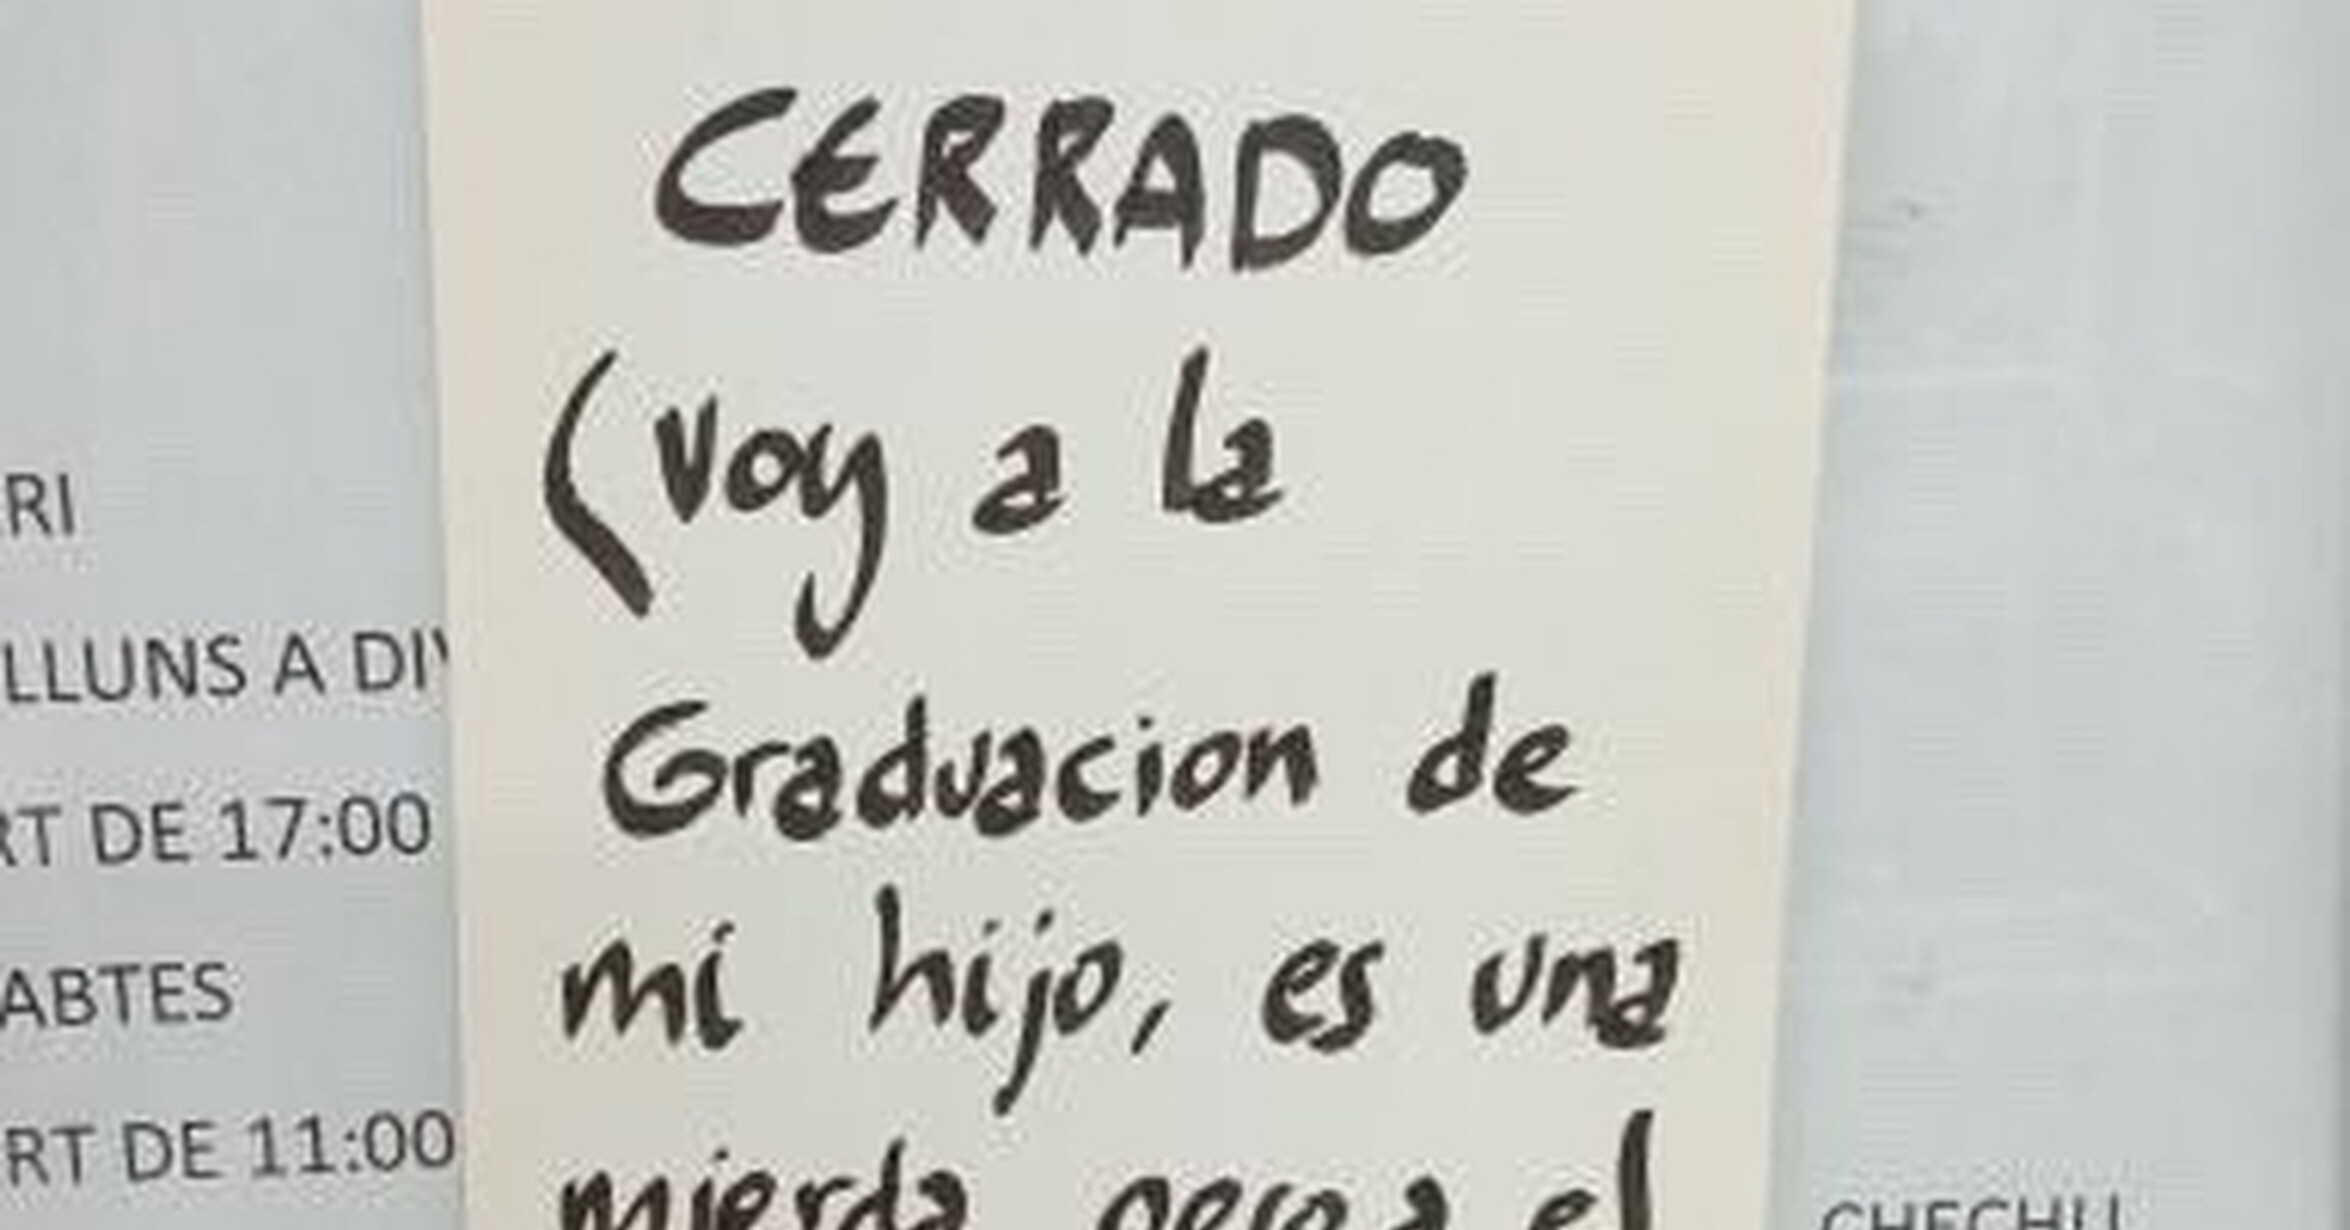 CERRADO
(Voy a la
Graduacion de
mi hijo, es una
mierda pero a el
RI
LLUNS A DI
RT DE 17:00
ABTES
RT DE 11:00
CHECHU